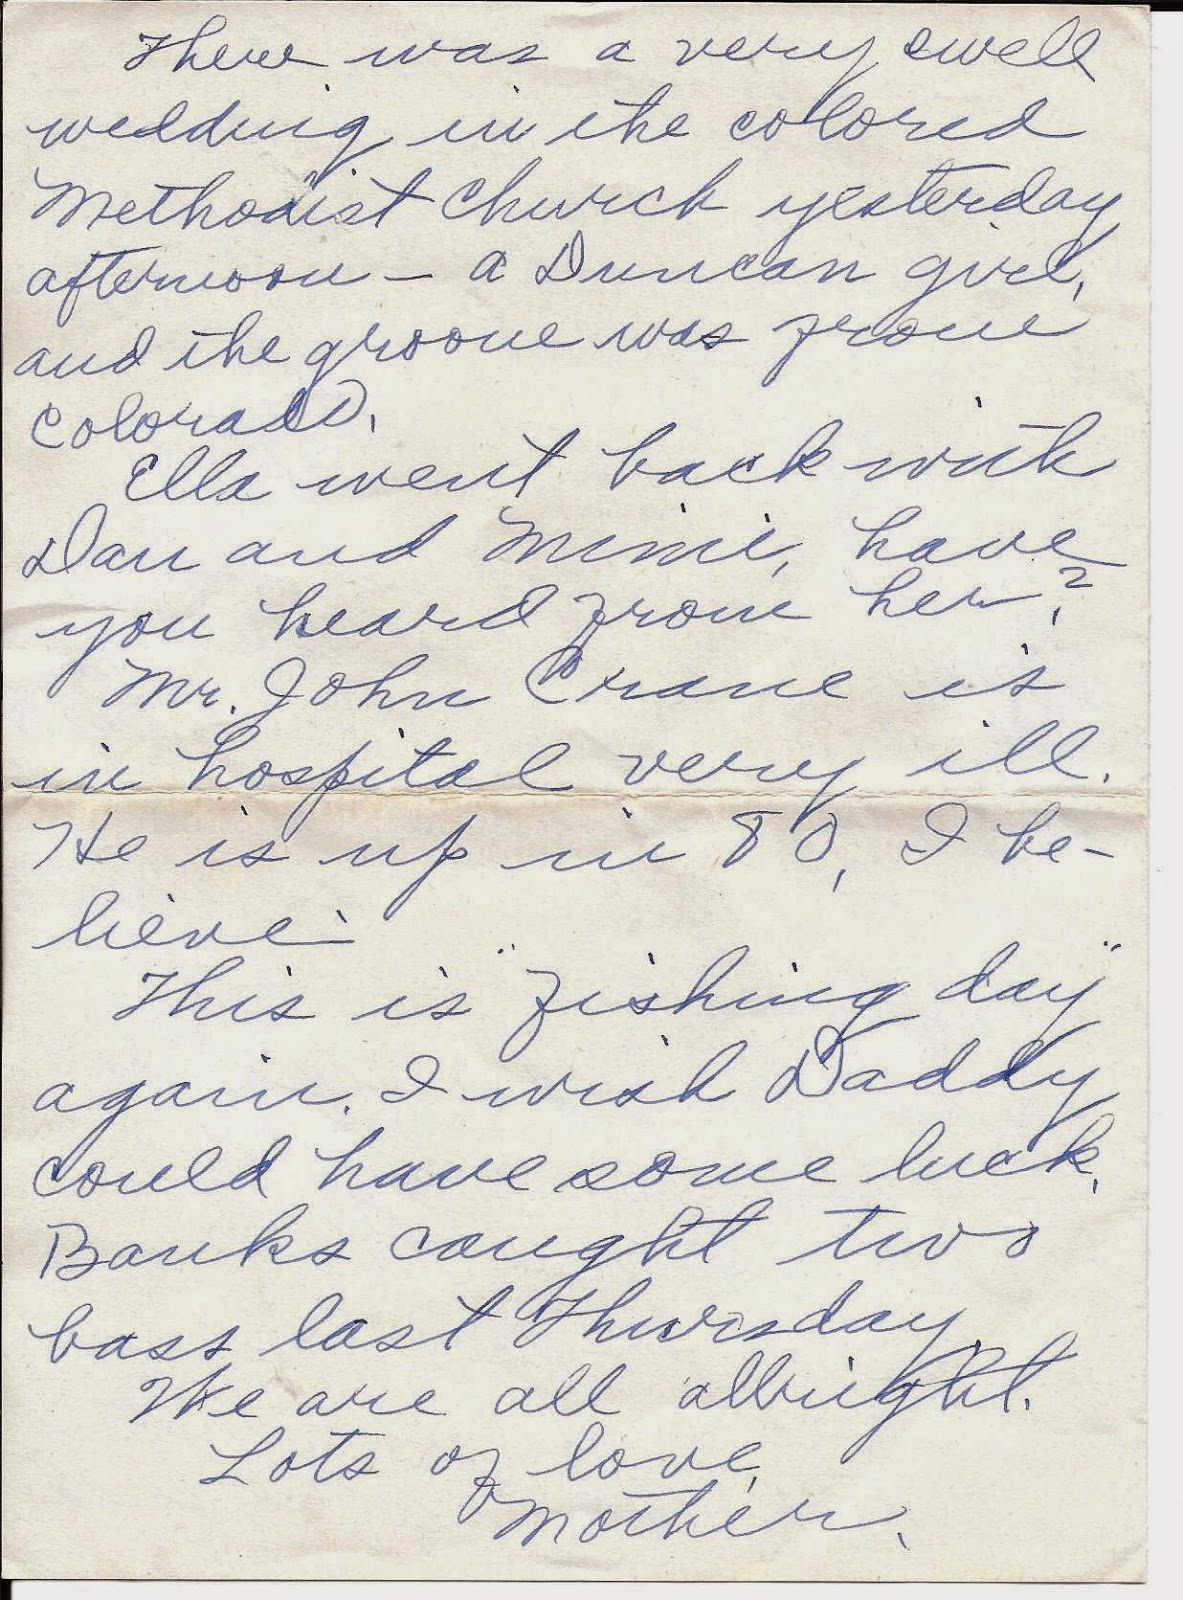 There was a very swell
wedding in the colored
Methodist Church yesterday
afternoon - a Duncan girl,
and the groom was from
Colorado.
Ella went back with
Dan and Mimi, have
you heard from her?
Mr. John Crane is
in hospital very ill.
He is up in 80, I be-
lieve.
This is "fishing day"
again. I wish Daddy
could have some luck.
Banks caught two
bass last Thursday.
We are all allright.
Lots of love,
Mother.